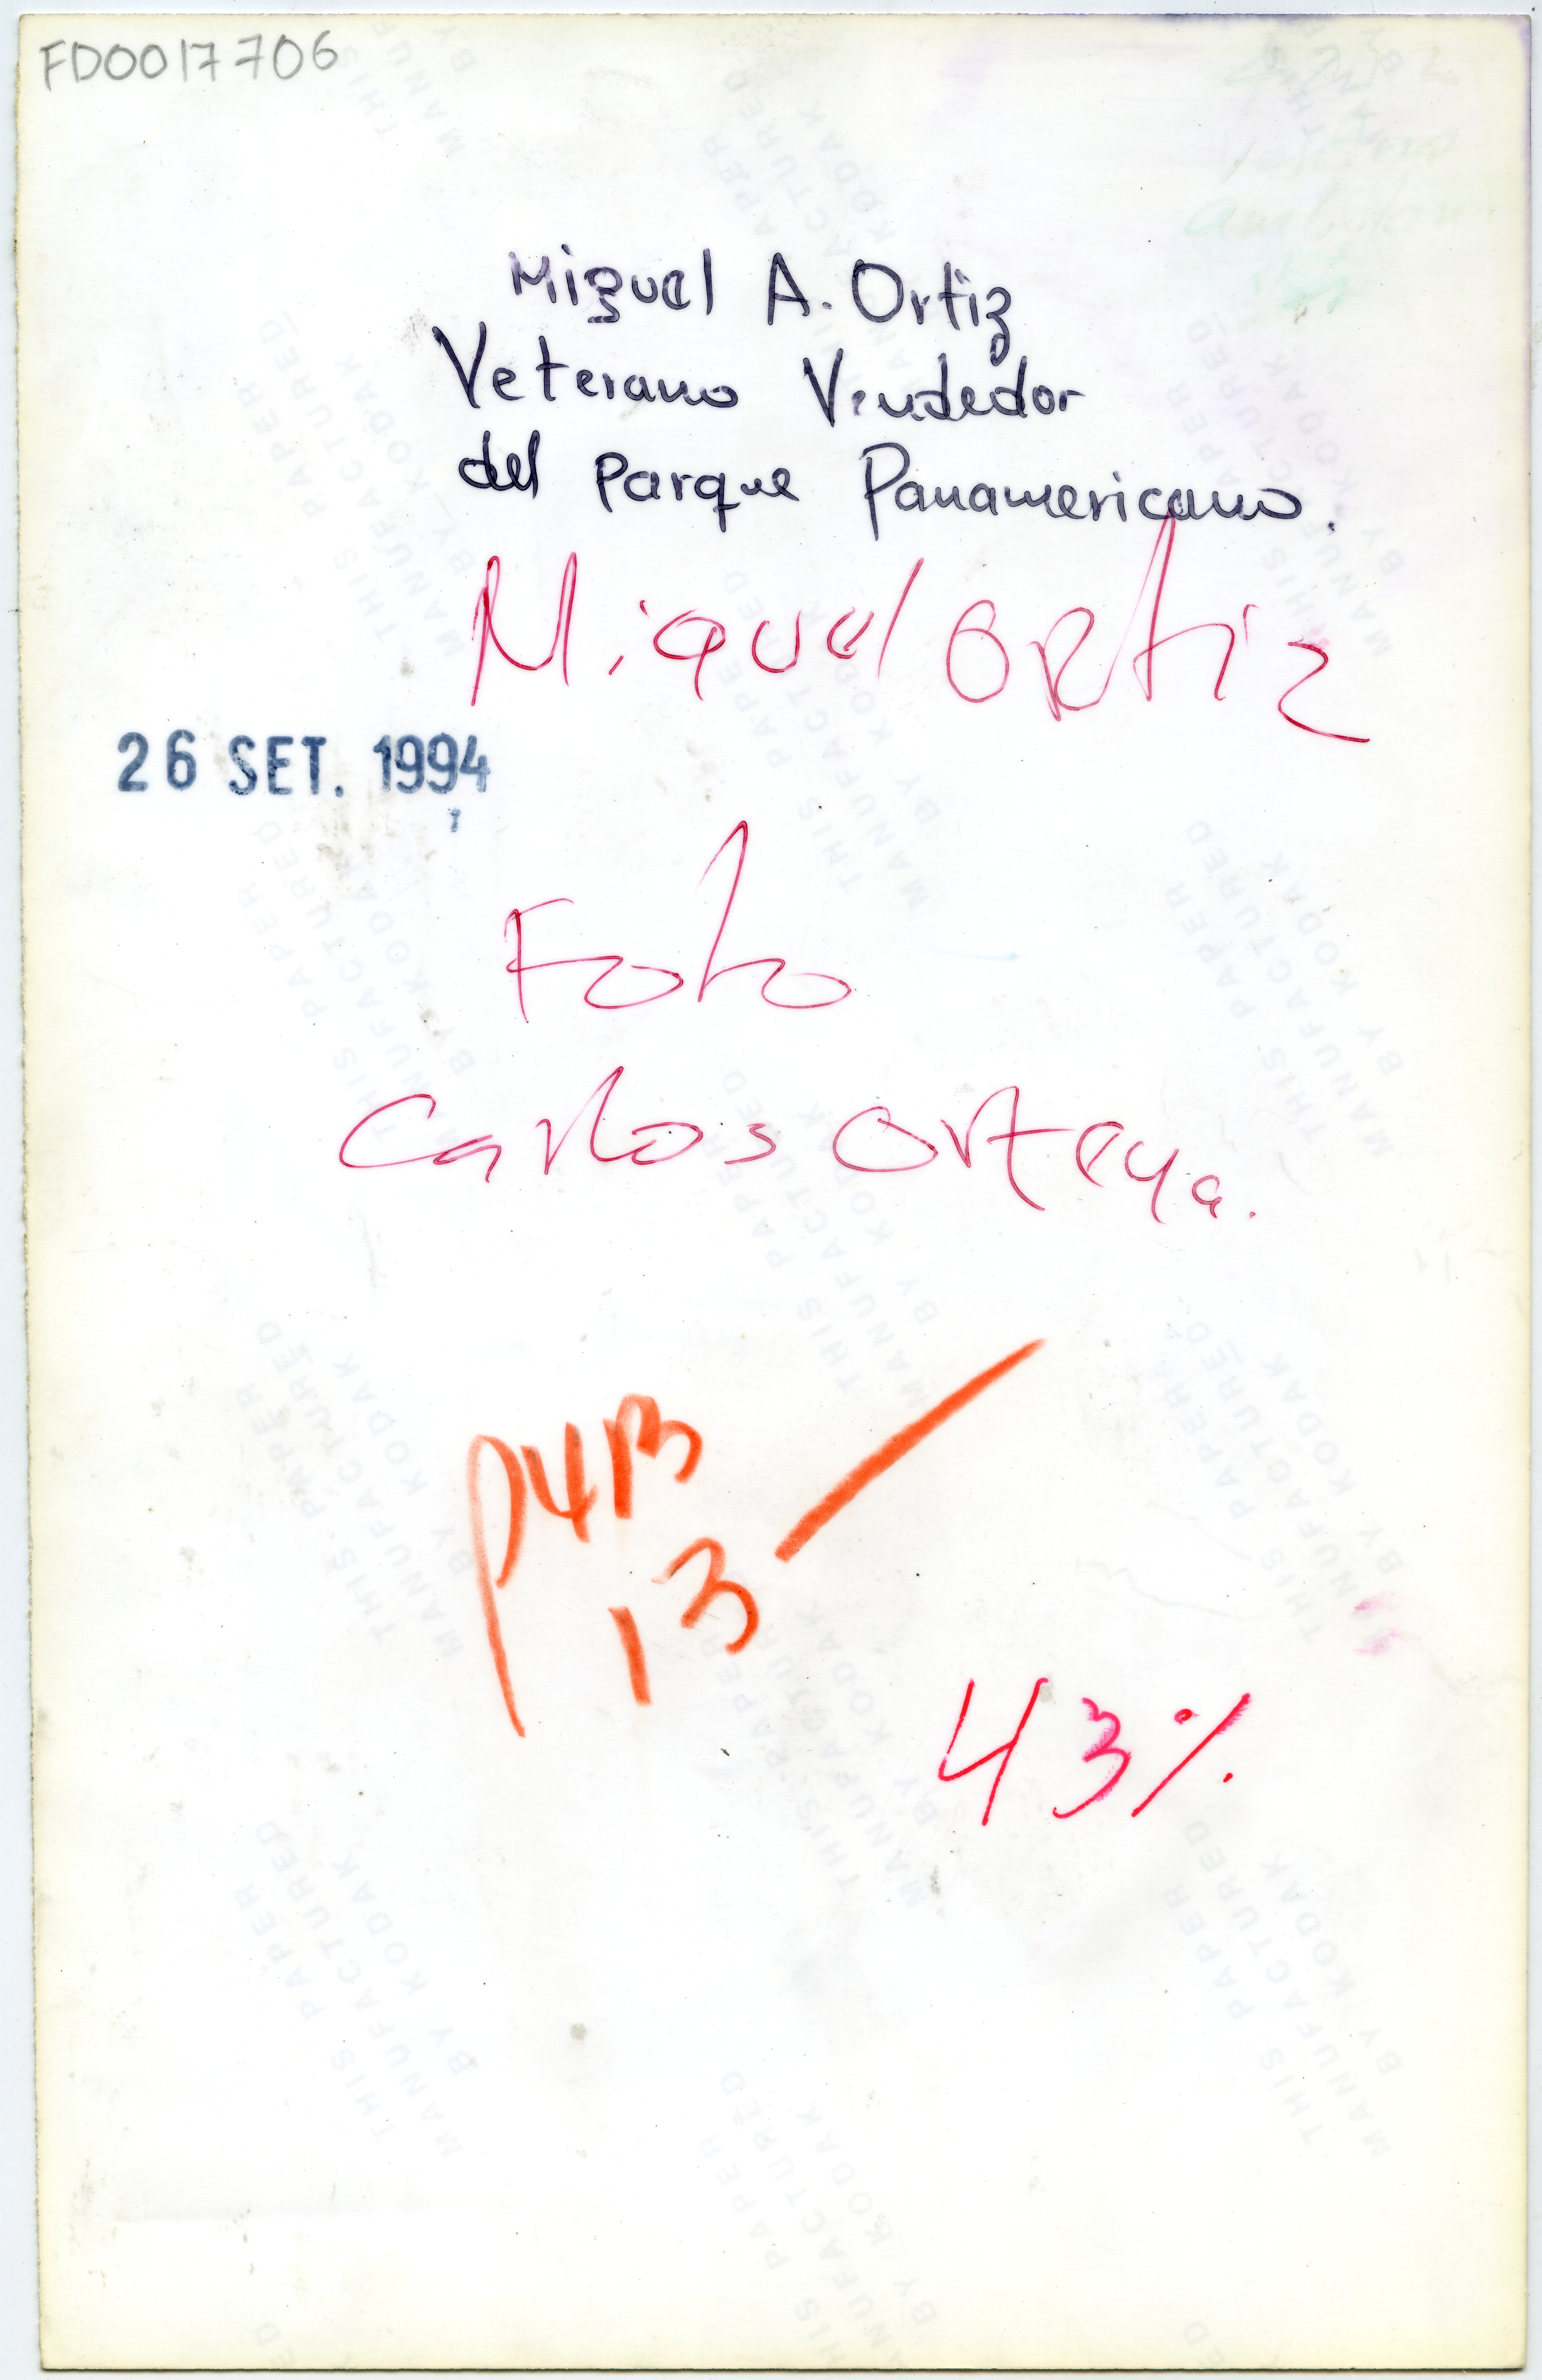 FD0017706
Miguel A. Ortiz
Veterano Vendedor
del Parque Panamericano.
Miguel Ortiz
26 SET. 1994
Foto
Carlos Ortega.
P4B
13
43%
THIS PAPER
MANUFACTURED
BY KODAK